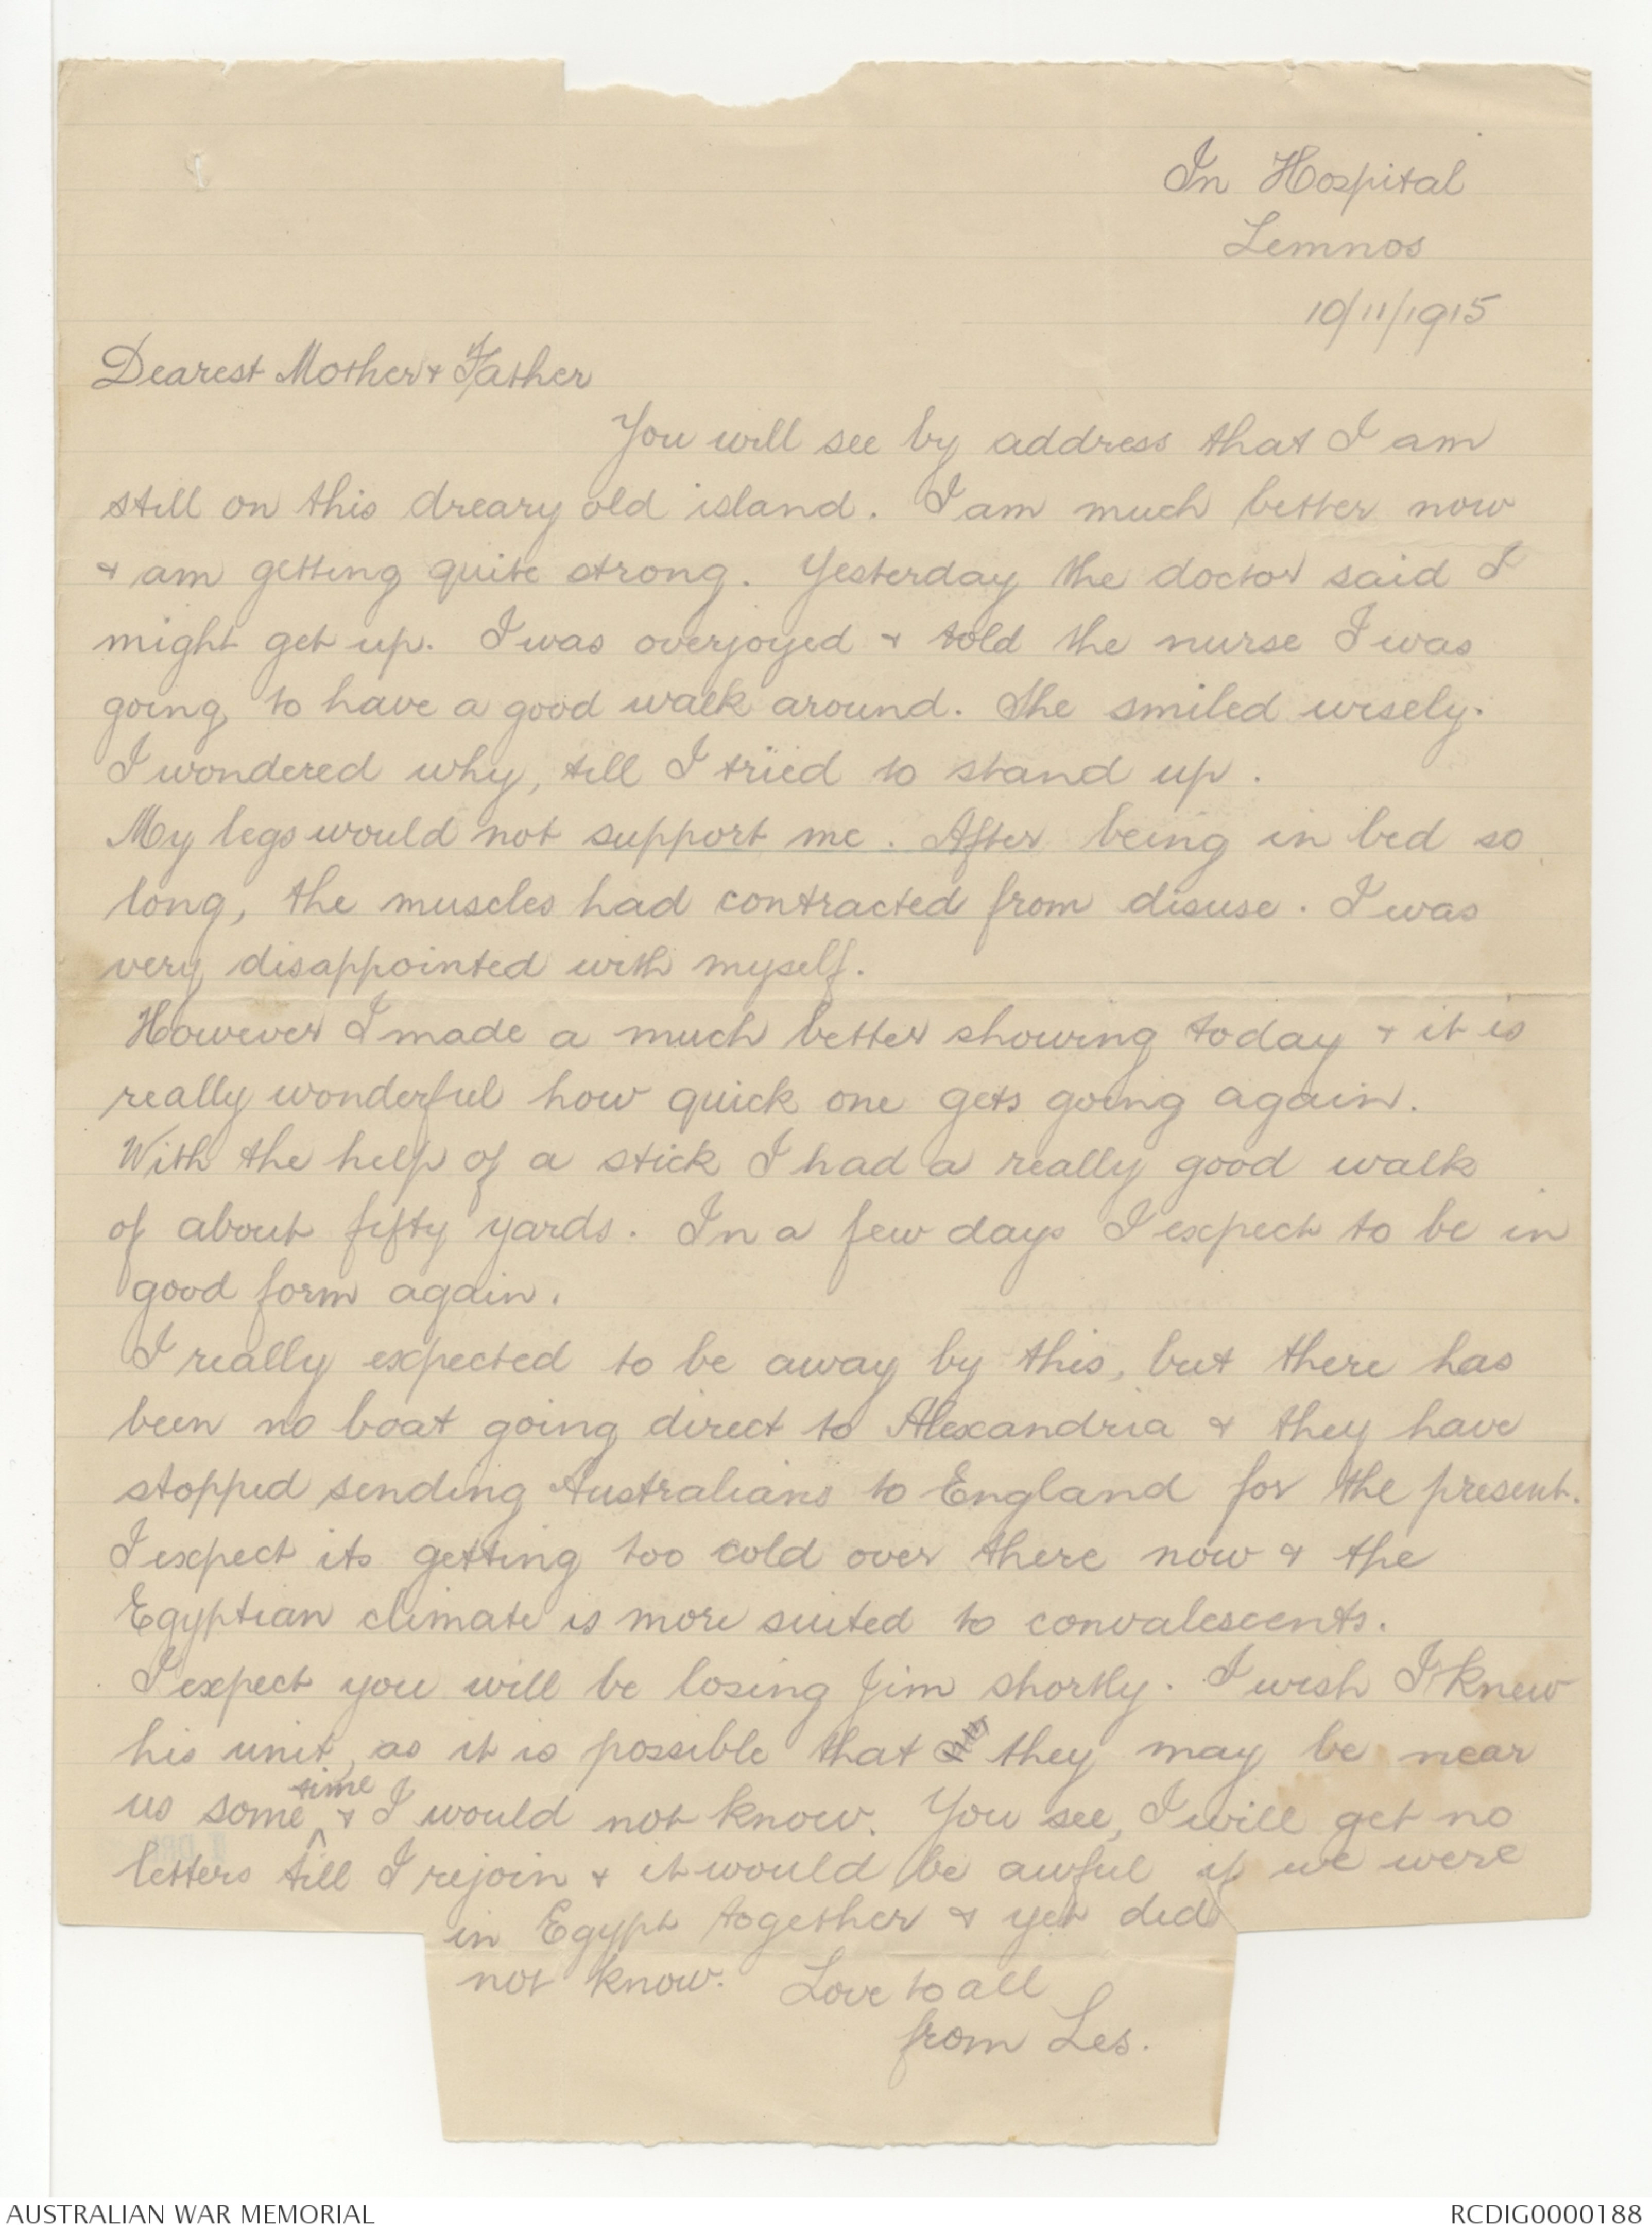 In Hospital
Lemnos
10/11/1915
Dearest Mother & Father
You will see by address that I am
still on this dreary old island. I am much better now
& am getting quite strong. Yesterday the doctor said I
might get up. I was overjoyed & told the nurse I was
going to have a good walk around. She smiled wisely.
I wondered why, till I tried to stand up.
My legs would not support me. After being in bed so
long, the muscles had contracted from disuse. I was
very disappointed with myself.
However I made a much better showing today & it is
really wonderful how quick one gets going again.
With the help of a stick I had a really good walk
of about fifty yards. In a few days I expect to be in
good form again.
I really expected to be away by this, but there has
been no boat going direct to Alexandria & they have
stopped sending Australians to England for the present.
I expect its getting too cold over there now & the
Egyptian climate is more suited to convalescents.
I expect you will be losing Jim shortly. I wish I knew
his unit, as it is possible that they may be near
us some time & I would not know. You see, I will get no
letters till I rejoin & it would be awful if we were
in Egypt together & yet did
not know. Love to all
from Les.
AUSTRALIAN WAR MEMORIAL
RCDIG0000188